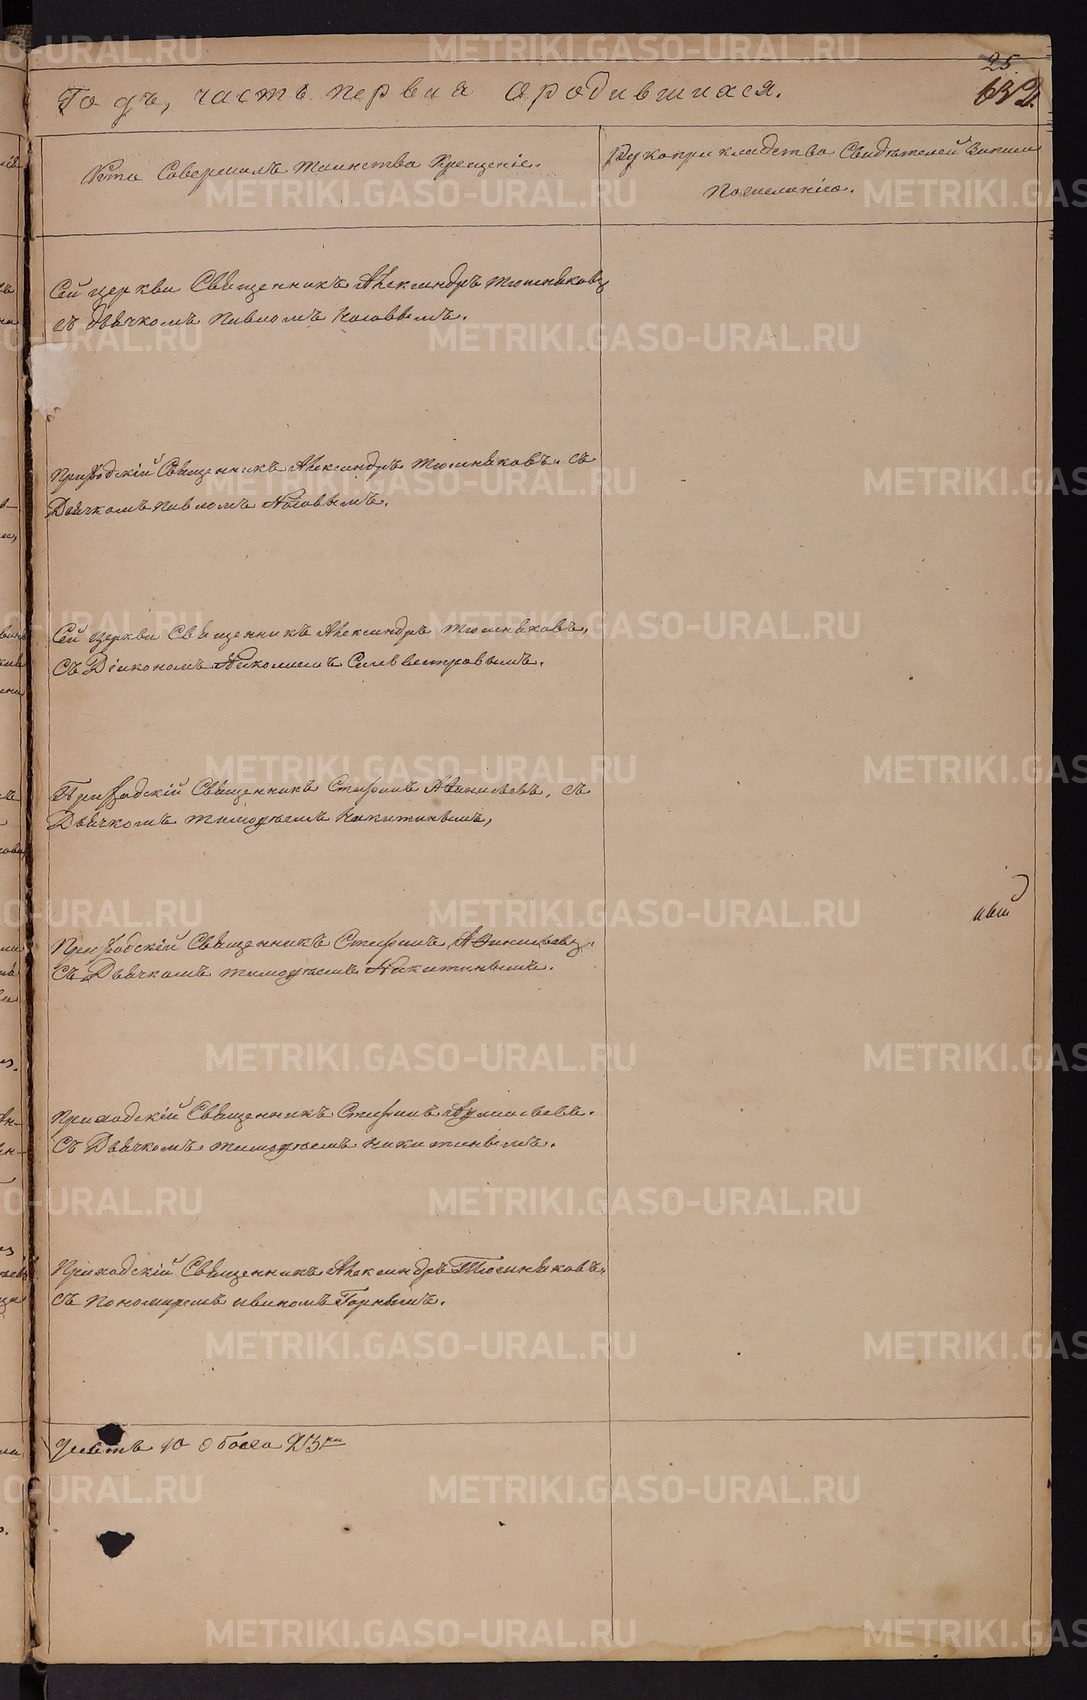 25
632
Годъ, часть первая ородившихся.
Кто Совершалъ таинства Крещение.
Рукоприкладства Свидѣтелей Записи
Пожеланію.
Сей церкви Священникъ Александръ Тюшняковъ
съ дьячкомъ Павломъ
Приходскій Священникъ Александръ Тюшняковъ. съ
Дьячкомъ Павломъ
Сей церкви Священникъ Александръ Тюшняковъ,
Съ Діакономъ Николаемъ Силвестровымъ.
Приходскій Священникъ Стефанъ Афанасьевъ, съ
Дьячкомъ Тимофеемъ Никитинымъ,
Приходскій Священникъ Стефанъ Афанасьевъ.
Съ Дьячкомъ Тимофеемъ Никитинымъ.
Приходскій Священникъ Стефанъ
Съ Дьячкомъ Тимофеемъ Никитинымъ.
Приходскій Священникъ Александръ Тюшняковъ.
Съ Пономаремъ Иваномъ Горнымъ.
10 обоего
METRIKI.GASO-URAL.RU